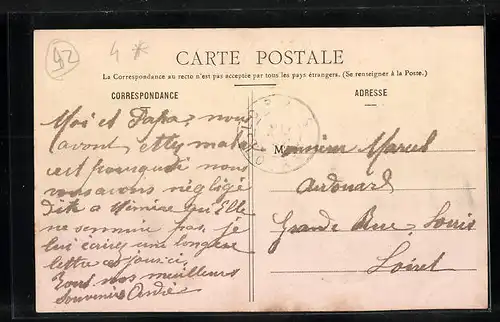 92
4 *
CARTE POSTALE
La Correspondance au recto n'est pas acceptée par tous les pays étrangers. (Se renseigner à la Poste.)
CORRESPONDANCE
ADRESSE
Moi et Papa, nous
avont etty malade
cest pourquoi nous
vous avons négligé
dite a Mimise qu'Elle
ne s'ennuie pas, je
lui écirez une longue
lettre ces jours ci.
Tous nos meilleurs
souvenirs André
Monsieur Marcel
Ardouard
Grande Rue, Lorris
Loiret